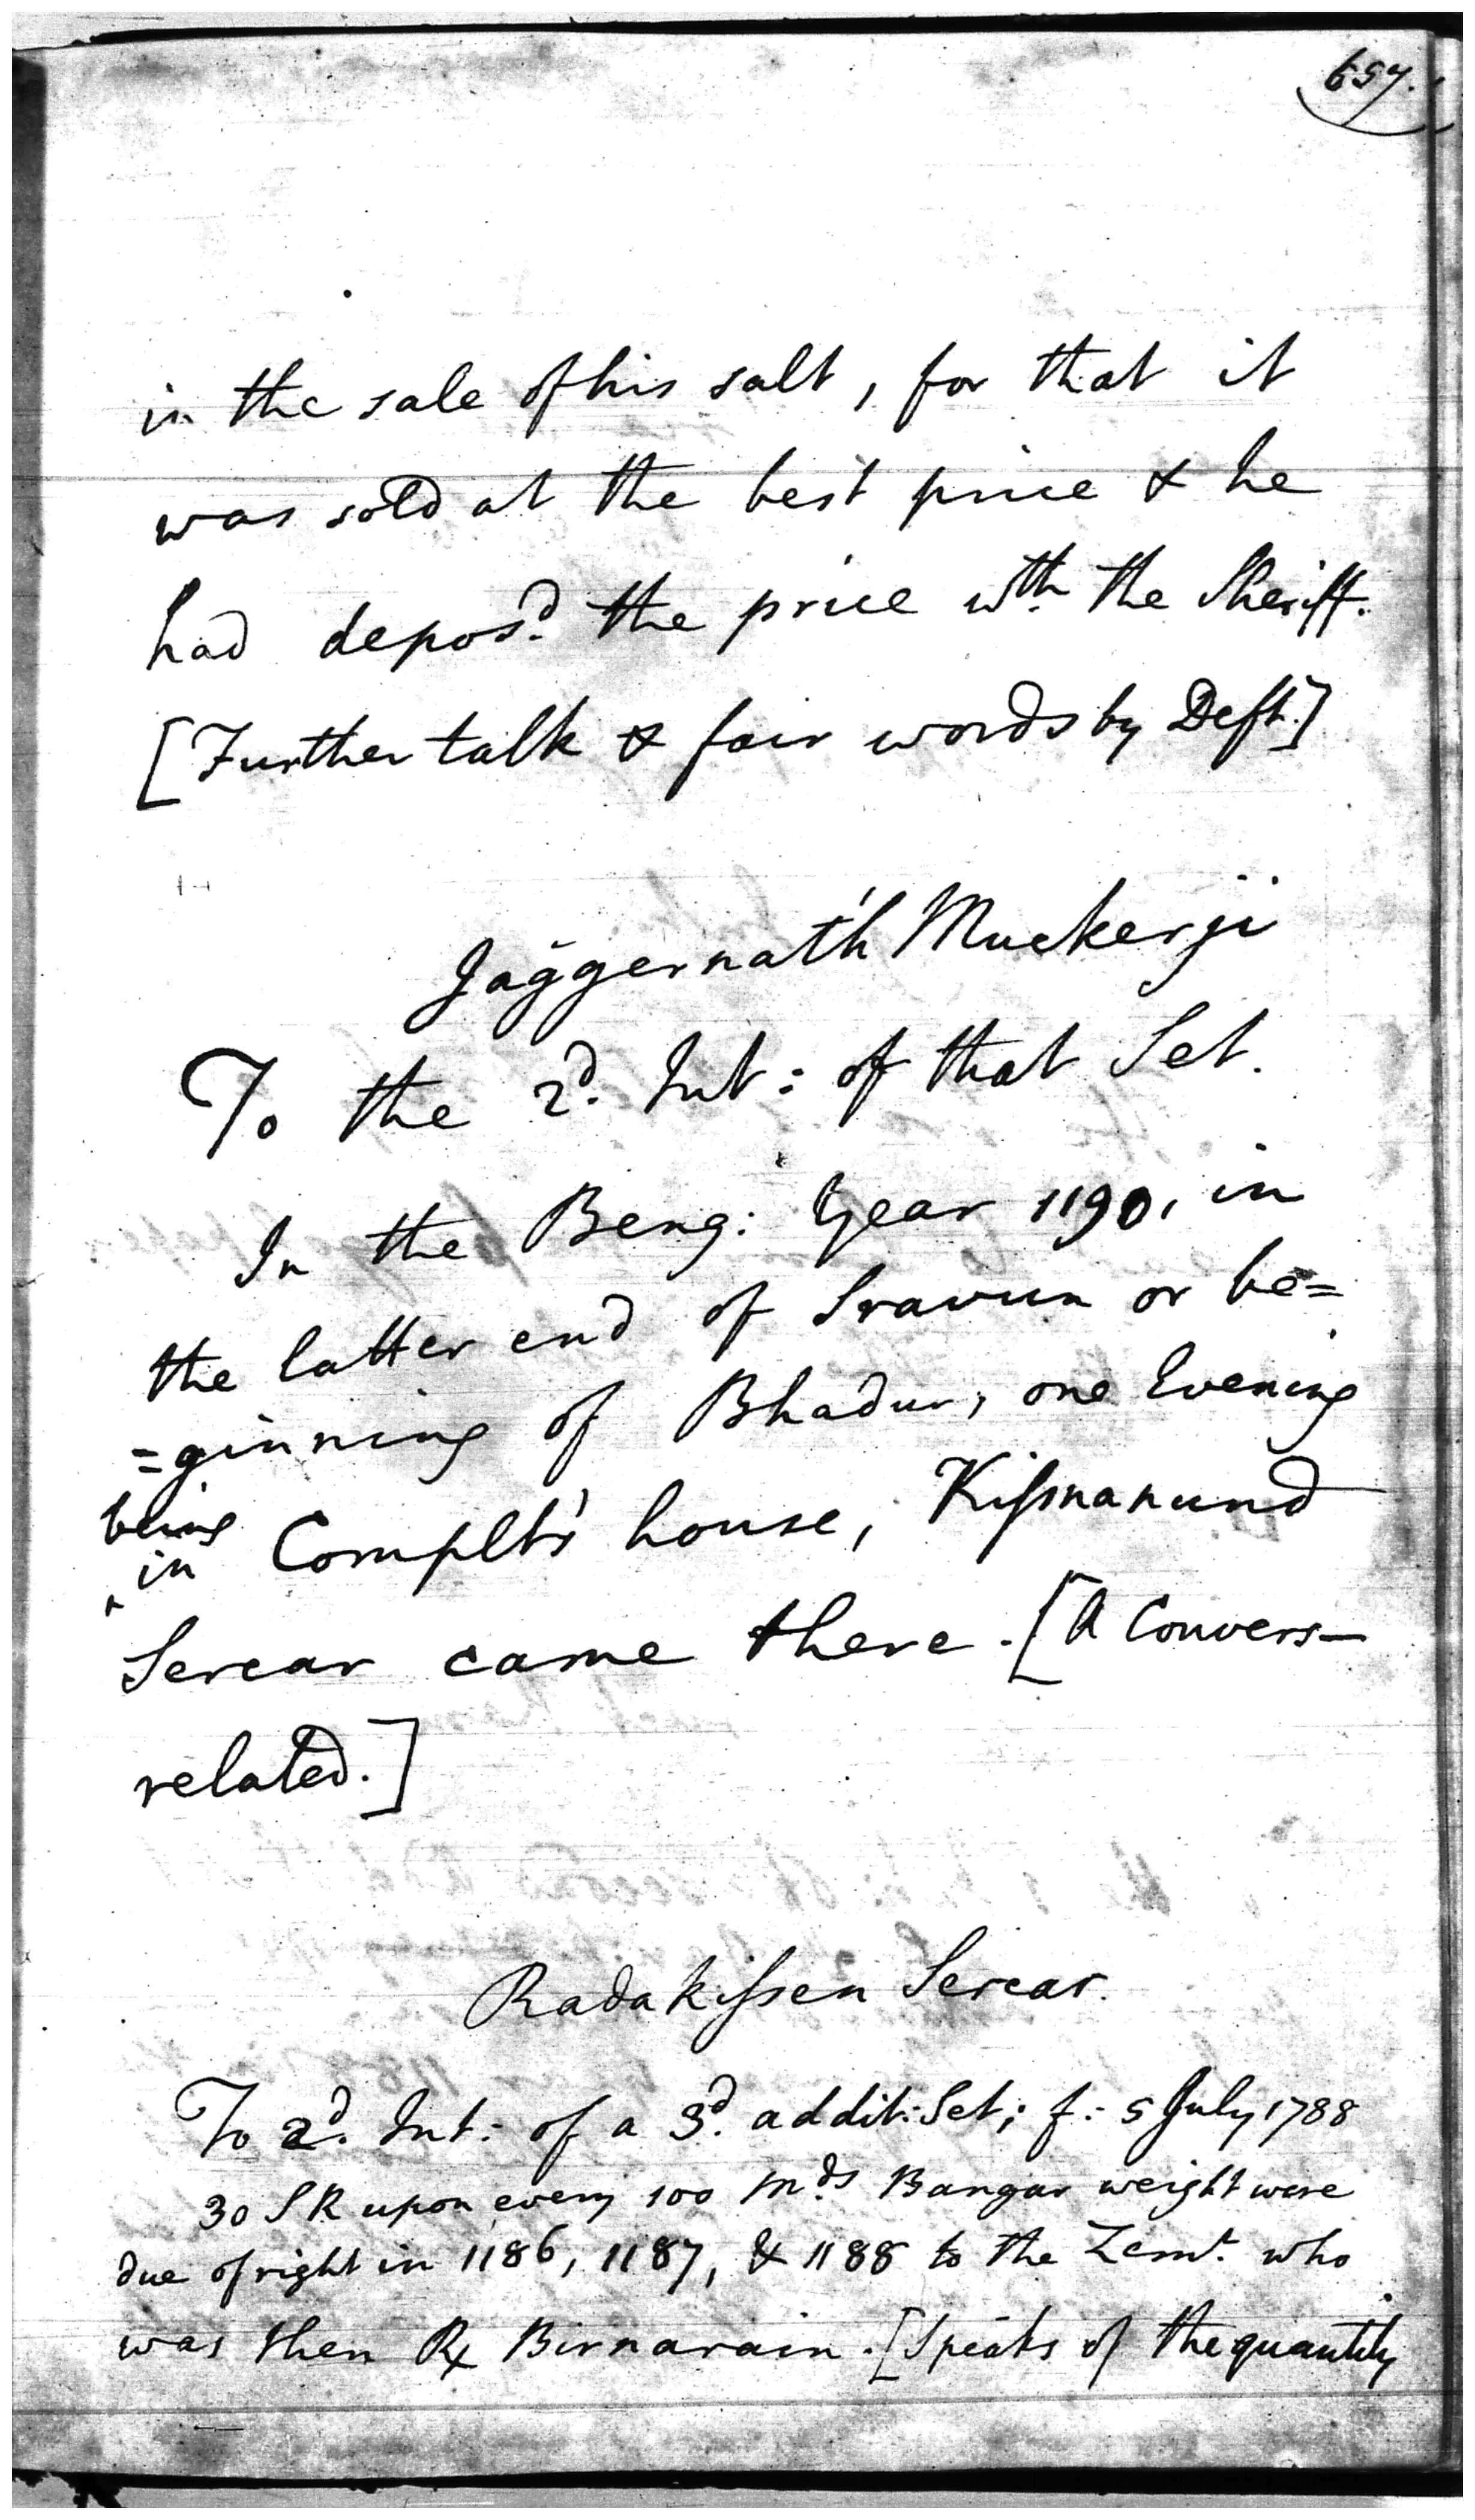 657.
in the sale of his salt, for that it
was sold at the best price & he
had depos.d the price wth. the Sheriff.
[Further talk & fair words by Deft.]
Jaggernath Muckerji
To the 2d. Int: of that Set.
In the Beng: Year 1190, in
the latter end of Sravun or be=
=ginning of Bhadur, one Evening
being
^in Complts' house, Kiſsnanund
Sercar came there. [A Convers—
related.]
Radakiſsen Sercar.
To 2d. Int: of a 3d. addit: Set; f: 5 July 1788
30 SR upon every 100 mds. Bangar weight were
due of right in 1186, 1187, & 1188 to the Zemr. who
was then Rx Birnarain. [Speaks of the quantity